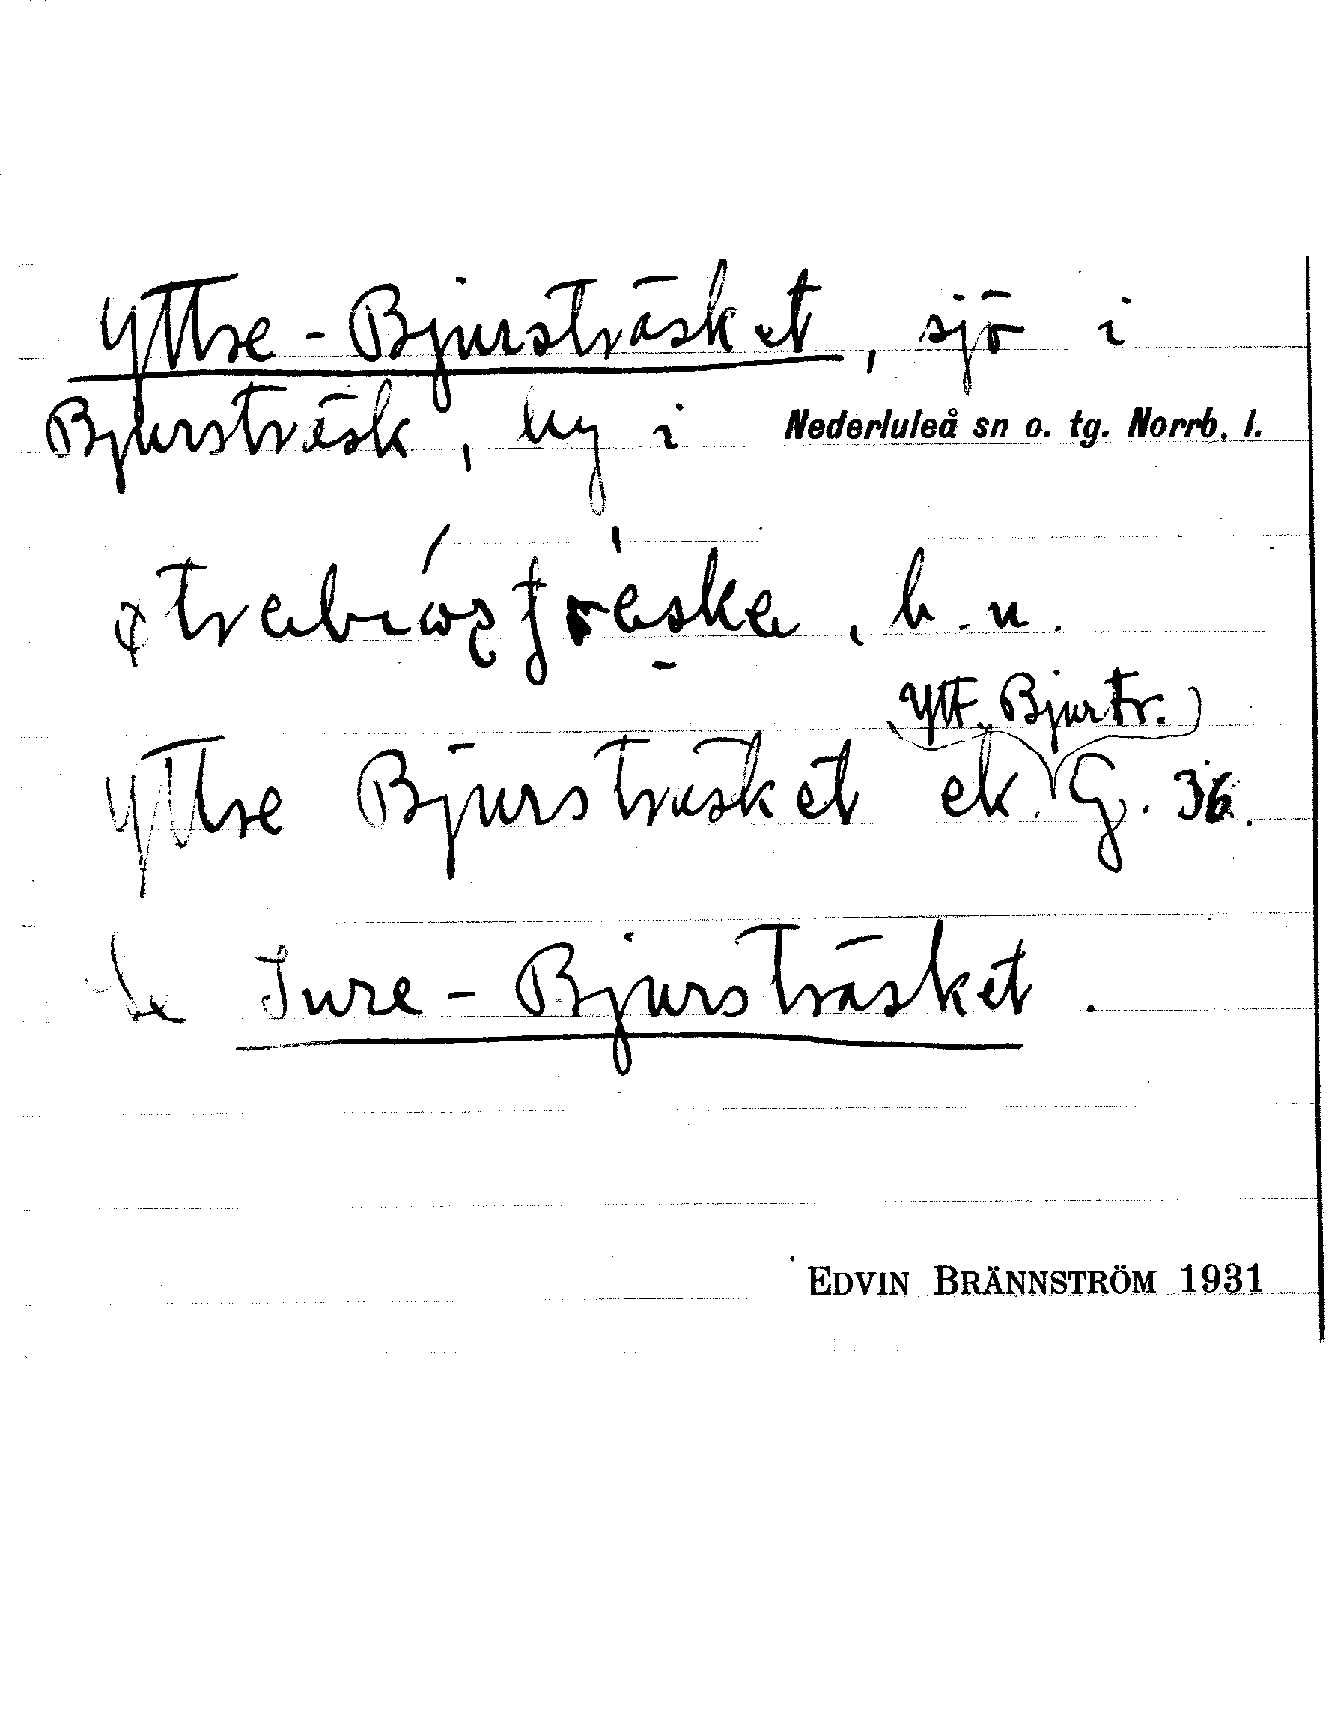 Yttre-Bjursträsket, sjö i
Bjursträsk, by i Nederluleå sn o. tg. Norrb. l.
b. n.
Ytt. Bjurtr.)
Yttre Bjursträsket ek. G. 36.
Se Inre-Bjursträsket.
EDVIN BRÄNNSTRÖM 1931